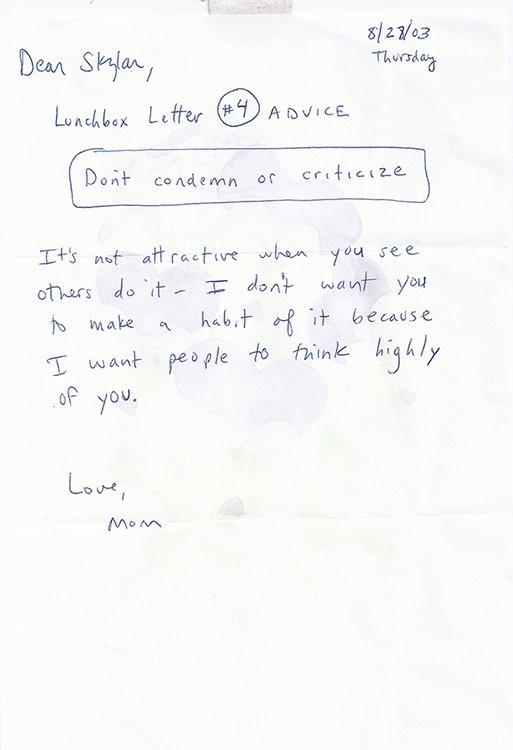 8/28/03
Thursday
Dear Skylar,
Lunchbox Letter #4 ADVICE
Don't condemn or criticize
It's not attractive when you see
others do it – I don't want you
to make a habit of it because
I want people to think highly
of you.
Love,
Mom